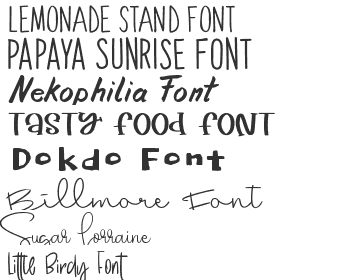 LEMONADE STAND FONT
PAPAYA SUNRISE FONT
Nekophilia Font
Tasty Food Font
Dokdo Font
Billmore Font
Sugar Lorraine
Little Birdy Font